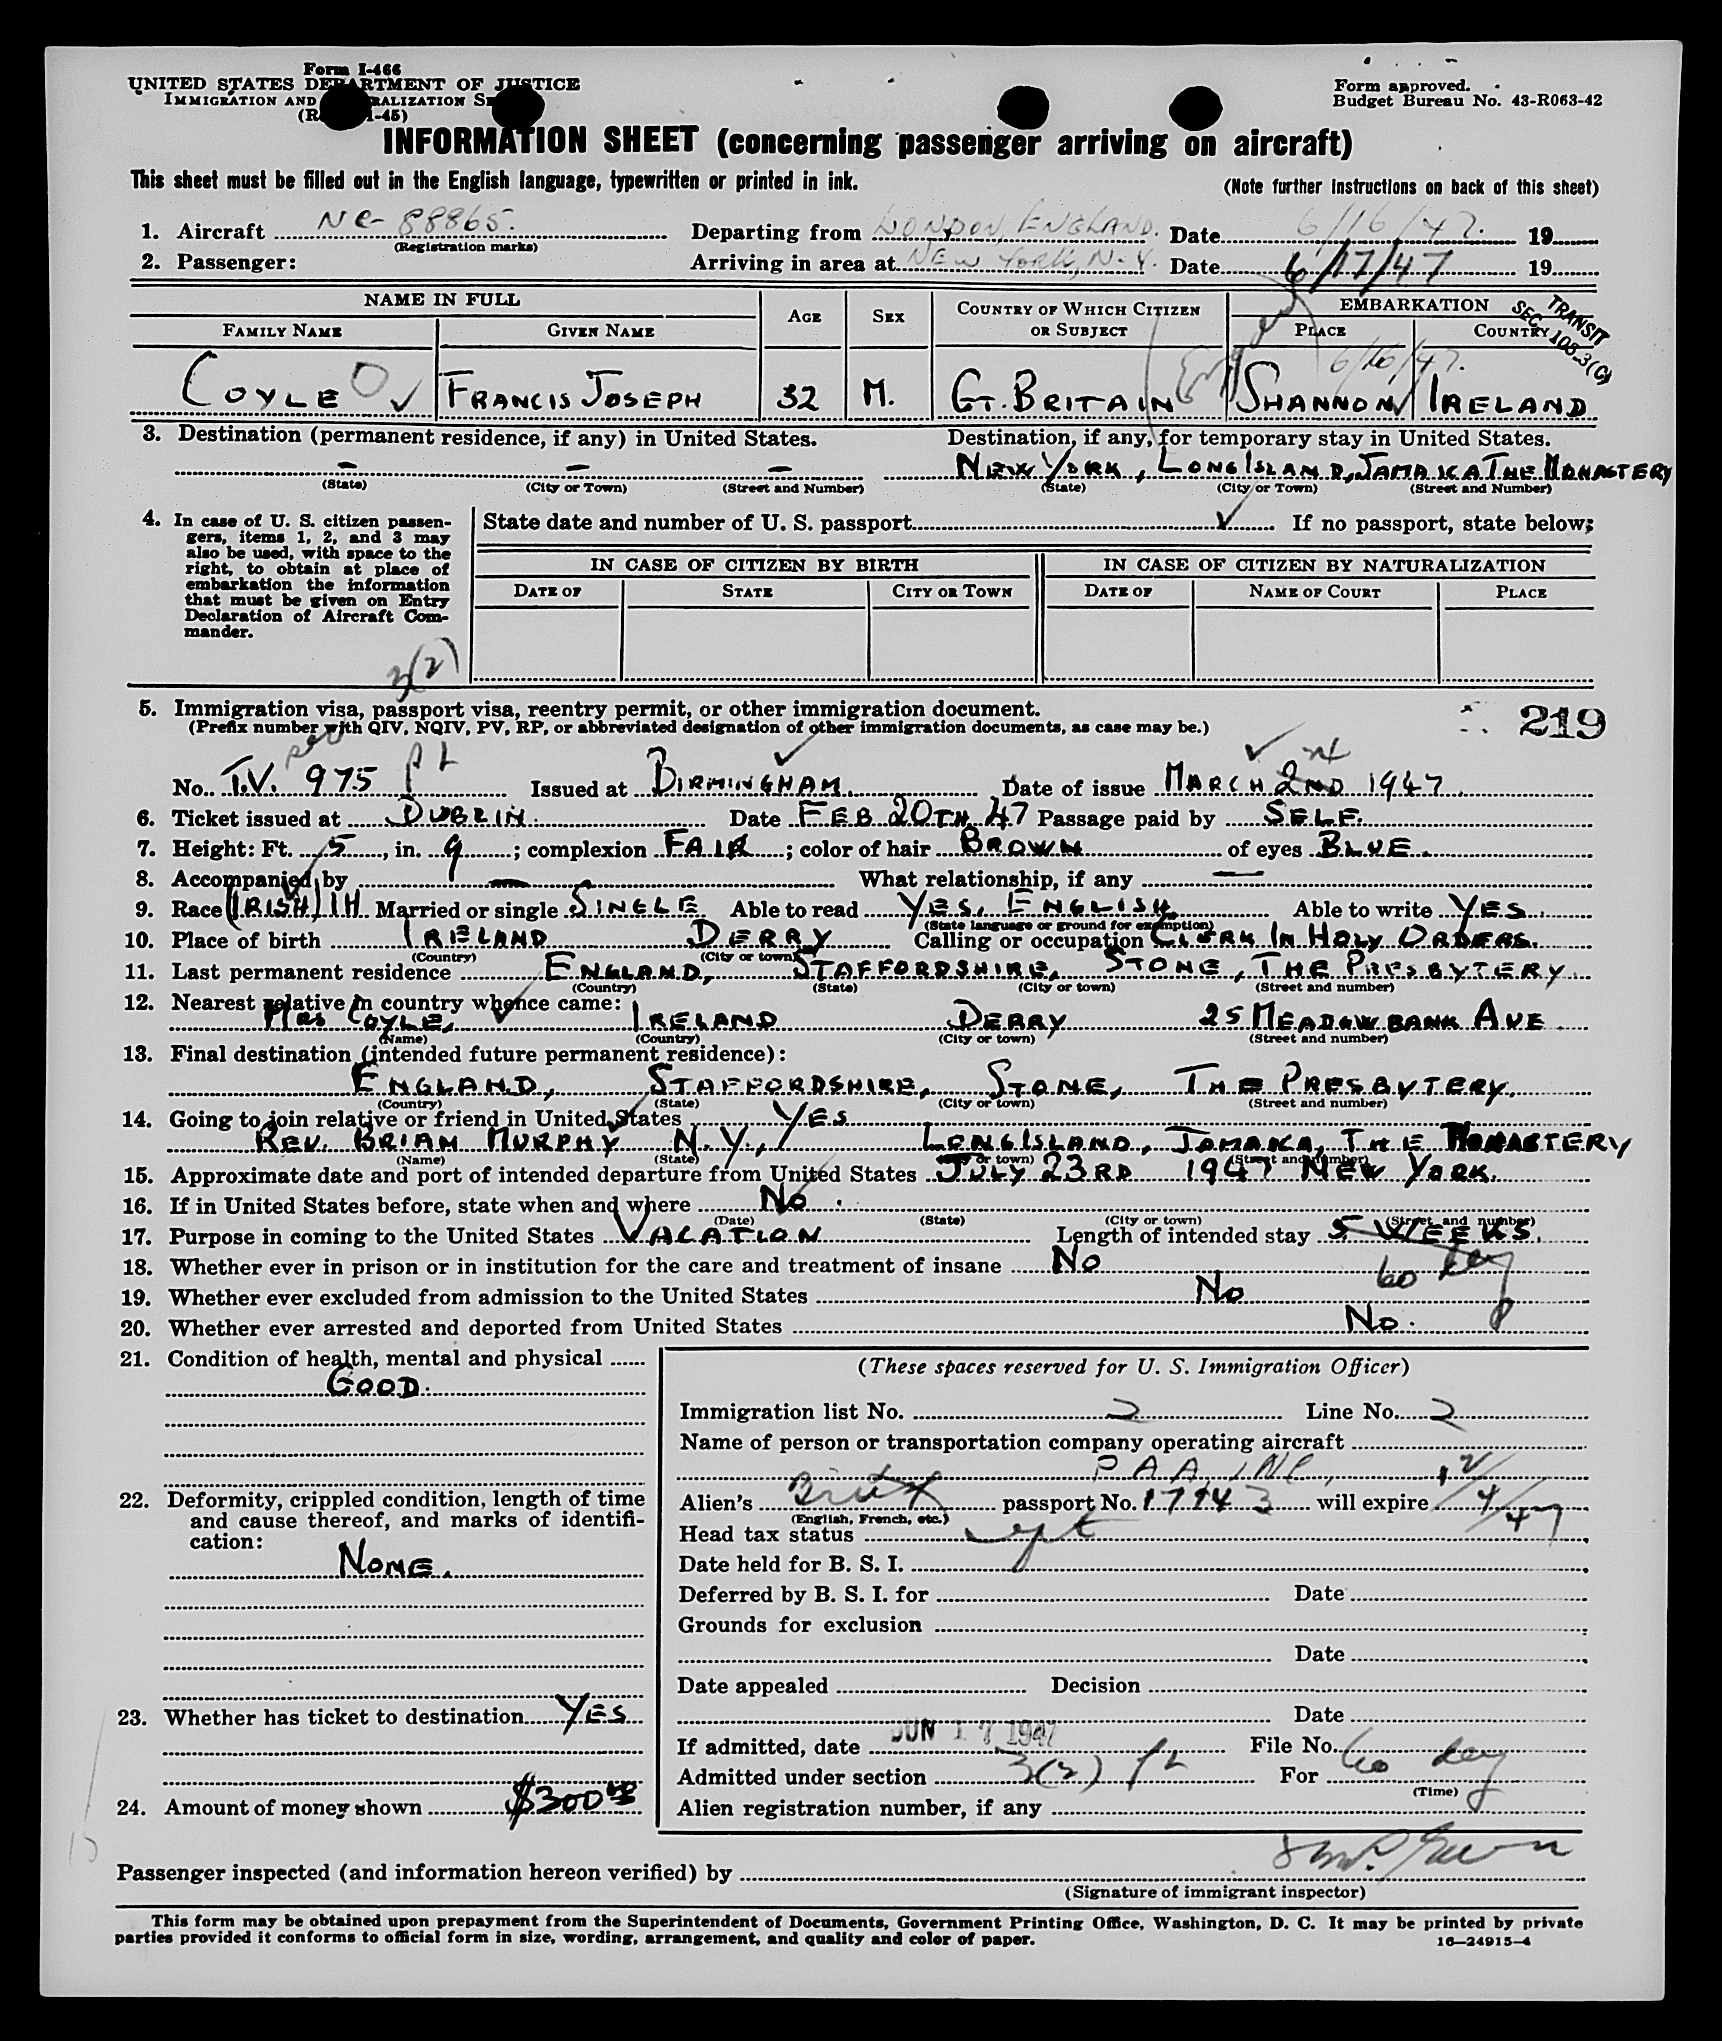 Form I-466
UNITED STATES DEPARTMENT OF JUSTICE
IMMIGRATION AND NATURALIZATION SE
Form approved.
Budget Bureau No. 43-R063-42
INFORMATION SHEET (concerning passenger arriving on aircraft)
This sheet must be filled out in the English language, typewritten or printed in ink.
(Note further instructions on back of this sheet)
1. Aircraft NC-88865. Departing from LONDON, ENGLAND. Date 6/16/47. 19
(Registration marks)
2. Passenger: Arriving in area at NEW YORK, N.Y. Date 6/17/47 19
NAME IN FULL AGE SEX COUNTRY OF WHICH CITIZEN OR SUBJECT EMBARKATION
TRANSIT
SEC 108.3(C)
FAMILY NAME GIVEN NAME PLACE COUNTRY
6/16/47.
COYLE FRANCIS JOSEPH 32 M. GT. BRITAIN SHANNON IRELAND
3. Destination (permanent residence, if any) in United States. Destination, if any, for temporary stay in United States.
– – – NEW YORK, LONG ISLAND, JAMAICA THE MONASTERY
(State) (City or Town) (Street and Number) (State) (City or Town) (Street and Number)
4. In case of U. S. citizen passen-
gers, items 1, 2, and 3 may
also be used, with space to the
right, to obtain at place of
embarkation the information
that must be given on Entry
Declaration of Aircraft Com-
mander.
State date and number of U. S. passport If no passport, state below:
IN CASE OF CITIZEN BY BIRTH IN CASE OF CITIZEN BY NATURALIZATION
DATE OF STATE CITY OR TOWN DATE OF NAME OF COURT PLACE
3(2)
5. Immigration visa, passport visa, reentry permit, or other immigration document.
(Prefix number with QIV, NQIV, PV, RP, or abbreviated designation of other immigration documents, as case may be.)
219
No. T.V. 975 Issued at BIRMINGHAM. Date of issue MARCH 2ND 1947.
6. Ticket issued at DUBLIN. Date FEB 20TH 47 Passage paid by SELF.
7. Height: Ft. 5, in. 9; complexion FAIR; color of hair BROWN of eyes BLUE.
8. Accompanied by — What relationship, if any —
9. Race (IRISH) IH Married or single SINGLE Able to read YES. ENGLISH Able to write YES.
(State language or ground for exemption)
10. Place of birth IRELAND DERRY Calling or occupation CLERK IN HOLY ORDERS.
(Country) (City or town)
11. Last permanent residence ENGLAND, STAFFORDSHIRE, STONE, THE PRESBYTERY.
(Country) (State) (City or town) (Street and number)
12. Nearest relative in country whence came:
MRS COYLE, IRELAND DERRY 25 MEADOWBANK AVE.
(Name) (Country) (City or town) (Street and number)
13. Final destination (intended future permanent residence):
ENGLAND, STAFFORDSHIRE, STONE, THE PRESBYTERY.
(Country) (State) (City or town) (Street and number)
14. Going to join relative or friend in United States YES
REV. BRIAN MURPHY N.Y., LONG ISLAND, JAMAICA, THE MONASTERY
(Name) (State) (City or town) (Street and number)
15. Approximate date and port of intended departure from United States JULY 23RD 1947 NEW YORK.
16. If in United States before, state when and where NO.
(Date) (State) (City or town) (Street and number)
17. Purpose in coming to the United States VACATION Length of intended stay 5 WEEKS.
60 day
18. Whether ever in prison or in institution for the care and treatment of insane NO
19. Whether ever excluded from admission to the United States NO
20. Whether ever arrested and deported from United States NO.
21. Condition of health, mental and physical
GOOD.
22. Deformity, crippled condition, length of time
and cause thereof, and marks of identifi-
cation:
NONE.
23. Whether has ticket to destination YES
24. Amount of money shown $300
(These spaces reserved for U. S. Immigration Officer)
Immigration list No. 2 Line No. 2
Name of person or transportation company operating aircraft
P A A, INC,
Alien's Brit passport No. 17143 will expire 12/4/47
(English, French, etc.)
Head tax status
Date held for B. S. I.
Deferred by B. S. I. for Date
Grounds for exclusion
Date
Date appealed Decision
Date
If admitted, date JUN 17 1947 File No.
Admitted under section 3(2) For 60 day
(Time)
Alien registration number, if any
Passenger inspected (and information hereon verified) by
(Signature of immigrant inspector)
This form may be obtained upon prepayment from the Superintendent of Documents, Government Printing Office, Washington, D. C. It may be printed by private
parties provided it conforms to official form in size, wording, arrangement, and quality and color of paper.
16—24915-4